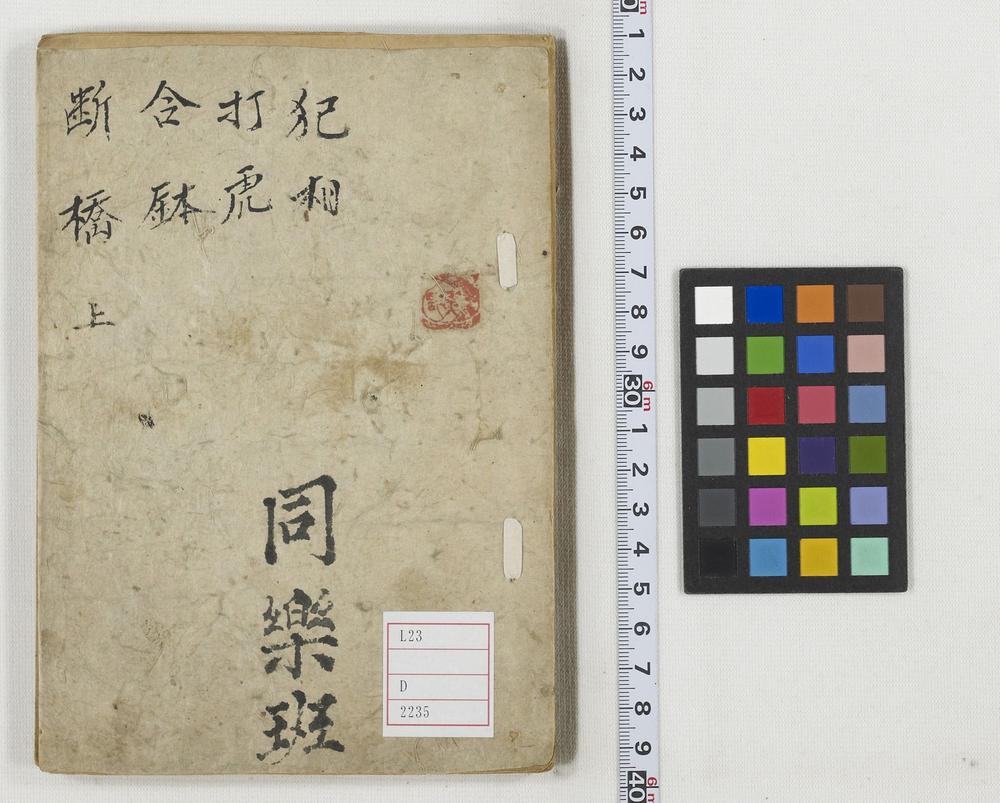 犯相
打虎
合鉢
断橋 上
同樂班
L23
D
2235
0
1
2
3
4
5
6
7
8
9
30
6m
1
2
3
4
5
6
7
8
9
40
6m